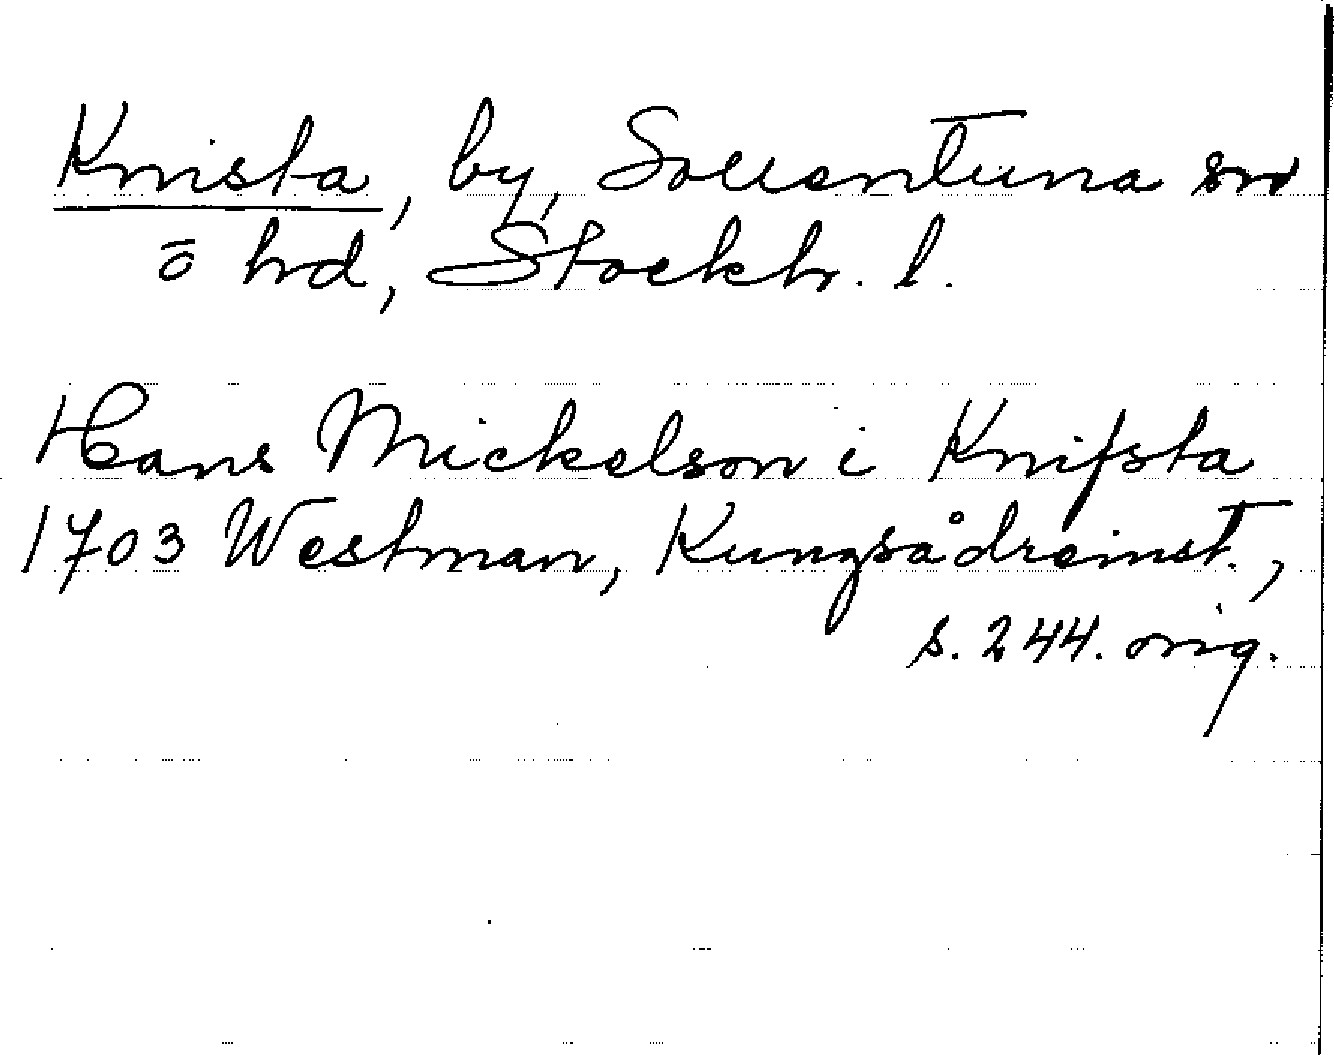 Knista, by, Sollentuna sn
o hd, Stockh. l.
Hans Mickelson i Knifsta
1703 Westman, Kungsådreinst.,
s. 244. orig.